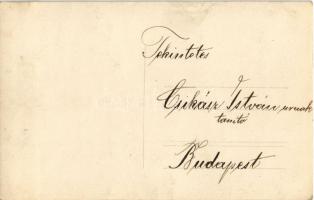 Tekintetes
Cukász István urnak
tanító
Budapest